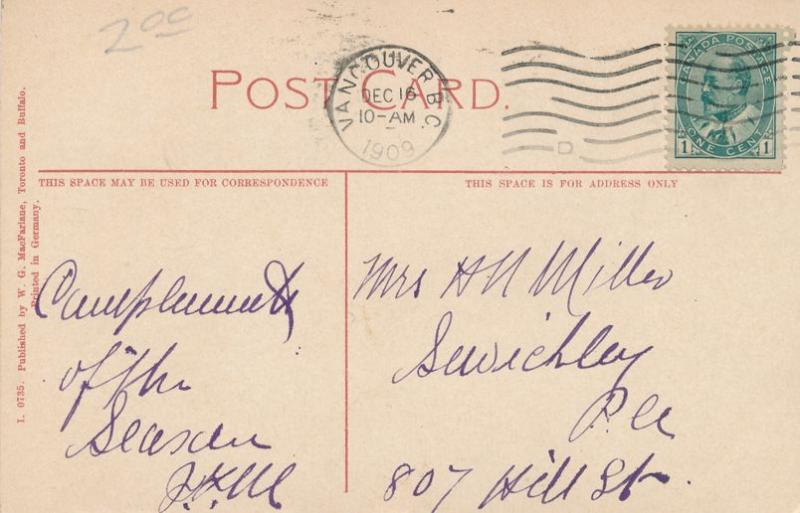 2 00
POST CARD.
VANCOUVER B.C.
DEC 16
10-AM
1909
D
CANADA POSTAGE
1 ONE CENT 1
THIS SPACE MAY BE USED FOR CORRESPONDENCE
THIS SPACE IS FOR ADDRESS ONLY
I. 0735. Published by W. G. MacFarlane, Toronto and Buffalo.
Printed in Germany.
Complements
of the
Season
Mrs H N Miller
Sewickley
Pa
807 Hill St.